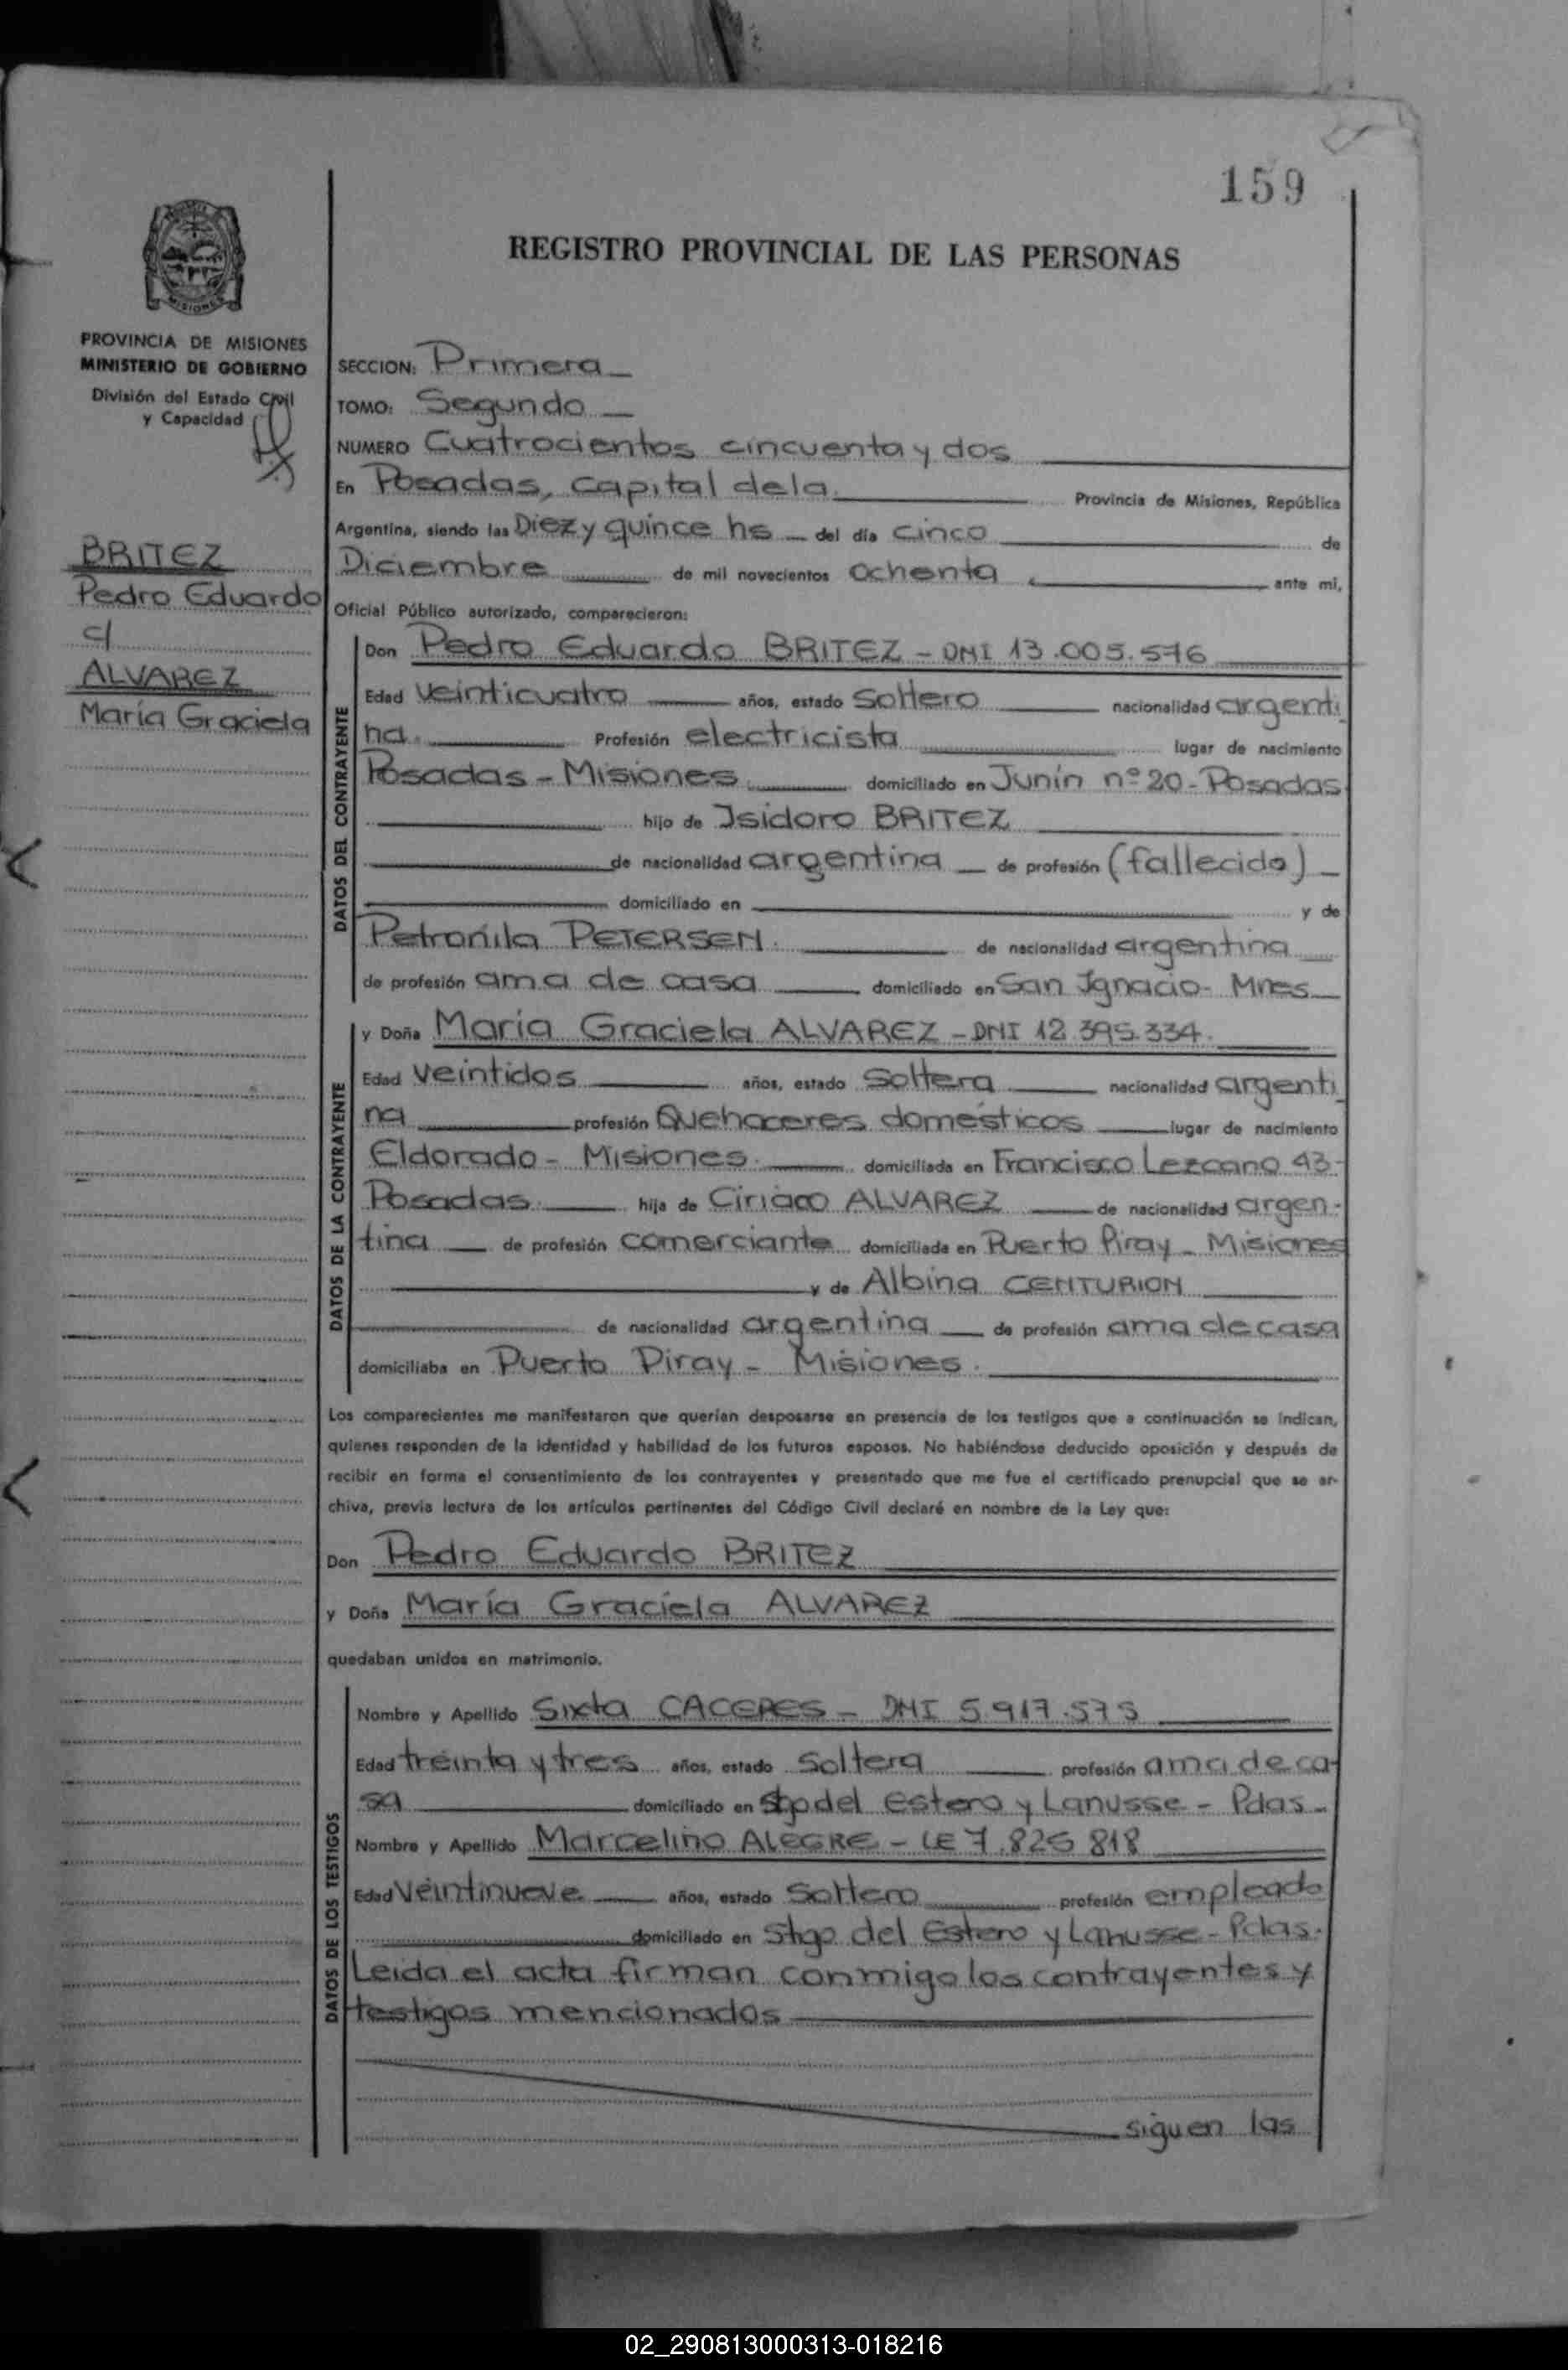 159
REGISTRO PROVINCIAL DE LAS PERSONAS
MISIONES
PROVINCIA DE MISIONES
MINISTERIO DE GOBIERNO
División del Estado Civil
y Capacidad
BRITEZ
Pedro Eduardo
c/
ALVAREZ
María Graciela
SECCION: Primera
TOMO: Segundo
NUMERO Cuatrocientos cincuenta y dos
En Posadas, capital de la Provincia de Misiones, República
Argentina, siendo las Diez y quince hs del día cinco de
Diciembre de mil novecientos ochenta ante mi,
Oficial Público autorizado, comparecieron:
DATOS DEL CONTRAYENTE
Don Pedro Eduardo BRITEZ - DNI 13.005.576
Edad veinticuatro años, estado soltero nacionalidad argenti
na. Profesión electricista lugar de nacimiento
Posadas - Misiones domiciliado en Junín nº 20 - Posadas
hijo de Isidoro BRITEZ
de nacionalidad argentina de profesión (fallecido)
domiciliado en y de
Petronila PETERSEN. de nacionalidad argentina
de profesión ama de casa domiciliado en San Ignacio - Mnes
DATOS DE LA CONTRAYENTE
y Doña María Graciela ALVAREZ - DNI 12.395.334.
Edad veintidos años, estado soltera nacionalidad argenti
na profesión Quehaceres domésticos lugar de nacimiento
Eldorado - Misiones. domiciliada en Francisco Lezcano 43-
Posadas. hija de Ciriaco ALVAREZ de nacionalidad argen-
tina de profesión comerciante domiciliada en Puerto Piray - Misiones
y de Albina CENTURION
de nacionalidad argentina de profesión ama de casa
domiciliaba en Puerto Piray - Misiones.
Los comparecientes me manifestaron que querían desposarse en presencia de los testigos que a continuación se indican,
quienes responden de la identidad y habilidad de los futuros esposos. No habiéndose deducido oposición y después de
recibir en forma el consentimiento de los contrayentes y presentado que me fue el certificado prenupcial que se ar-
chiva, previa lectura de los artículos pertinentes del Código Civil declaré en nombre de la Ley que:
Don Pedro Eduardo BRITEZ
y Doña María Graciela ALVAREZ
quedaban unidos en matrimonio.
DATOS DE LOS TESTIGOS
Nombre y Apellido Sixta CACERES - DNI 5.917.575
Edad treinta y tres años, estado soltera profesión ama de ca-
sa domiciliado en Stgo del estero y Lanusse - Pdas.
Nombre y Apellido Marcelino ALEGRE - LE 7.825 818
Edad Veintinueve años, estado soltero profesión empleado
domiciliado en Stgo del Estero y Lanusse - Pdas.
Leida el acta firman conmigo los contrayentes y
testigos mencionados
siguen las
02_290813000313-018216